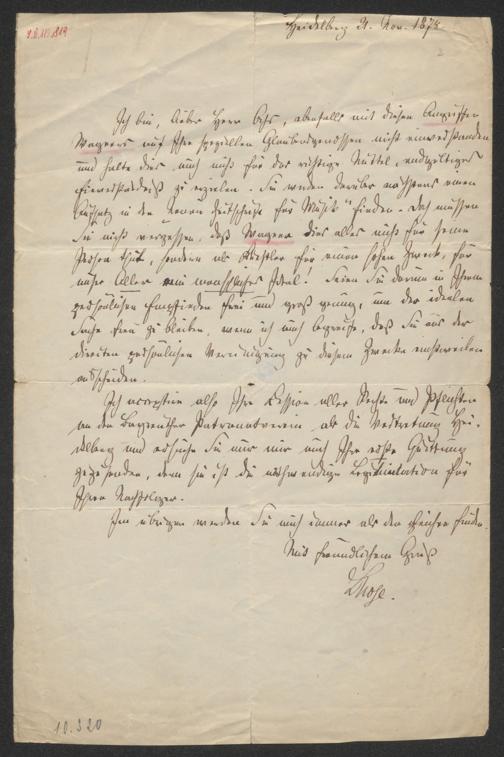 Heidelberg 21. Nov. 1878.
Ich bin, lieber Herr Ochs, ebenfalls mit diesen Angriffen
Wagners auf Ihre speziellen Glaubensgenossen nicht einverstanden
und halte dies auch nicht für das richtige Mittel, endgültiges
zu erzielen. Sie werden darüber nächstens einen
Aufsatz in der Neuen Zeitschrift für Musik" finden. Doch müssen
Sie nicht vergessen, daß Wagner dies alles nicht für seine
Person thut, sondern als Künstler für einen hohen Zweck, für
unser Aller rein menschliches Ideal! Seien Sie darum in Ihrem
persönlichen Empfinden frei und groß genug, um der idealen
Sache treu zu bleiben, wenn ich auch begreife, daß Sie aus der
direkten persönlichen Vereinigung zu diesem Zwecke einstweilen
ausscheiden.
Ich acceptire also Ihre Cession aller Rechte und Pflichten
an den Bayreuther Patronatverein als die Vertretung Hei-
delberg und ersuche Sie nur mir auch Ihre erste Quittung
zuzusenden, denn sie ist die nothwendige Legitimation für
Ihren Nachfolger.
Im übrigen werden Sie mich immer als den Gleichen finden.
Mit freundlichem Gruß
LNohl.
10.320